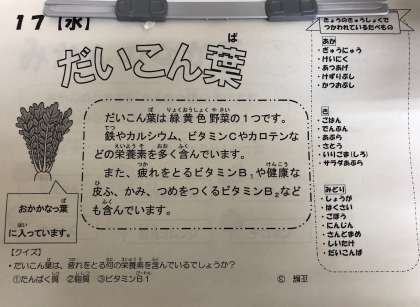 17【水】
だいこん葉
だいこん葉は緑黄色野菜の1つです。
鉄やカルシウム、ビタミンCやカロテンな
どの栄養素を多く含んでいます。
また、疲れをとるビタミンB₁や健康な
皮ふ、かみ、つめをつくるビタミンB₂など
も含んでいます。
おかかなっ葉
に入っています。
【クイズ】
・だいこん葉は、疲れをとる何の栄養素を含んでいるでしょうか？
①たんぱく質 ②脂質 ③ビタミンB1
きょうのきゅうしょくで
つかわれているたべもの
あか
・ぎゅうにゅう
・けいにく
・あつあげ
・けずりぶし
・かつおぶし
き
・ごはん
・でんぷん
・あぶら
・さとう
・いりごま(しろ)
・サラダあぶら
みどり
・しょうが
・はくさい
・ごぼう
・にんじん
・さんどまめ
・しいたけ
・だいこんば